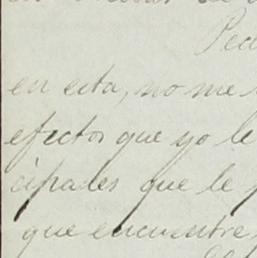 Ped
en esta, no me
efectos que yo le
cipales que le
que encuentre